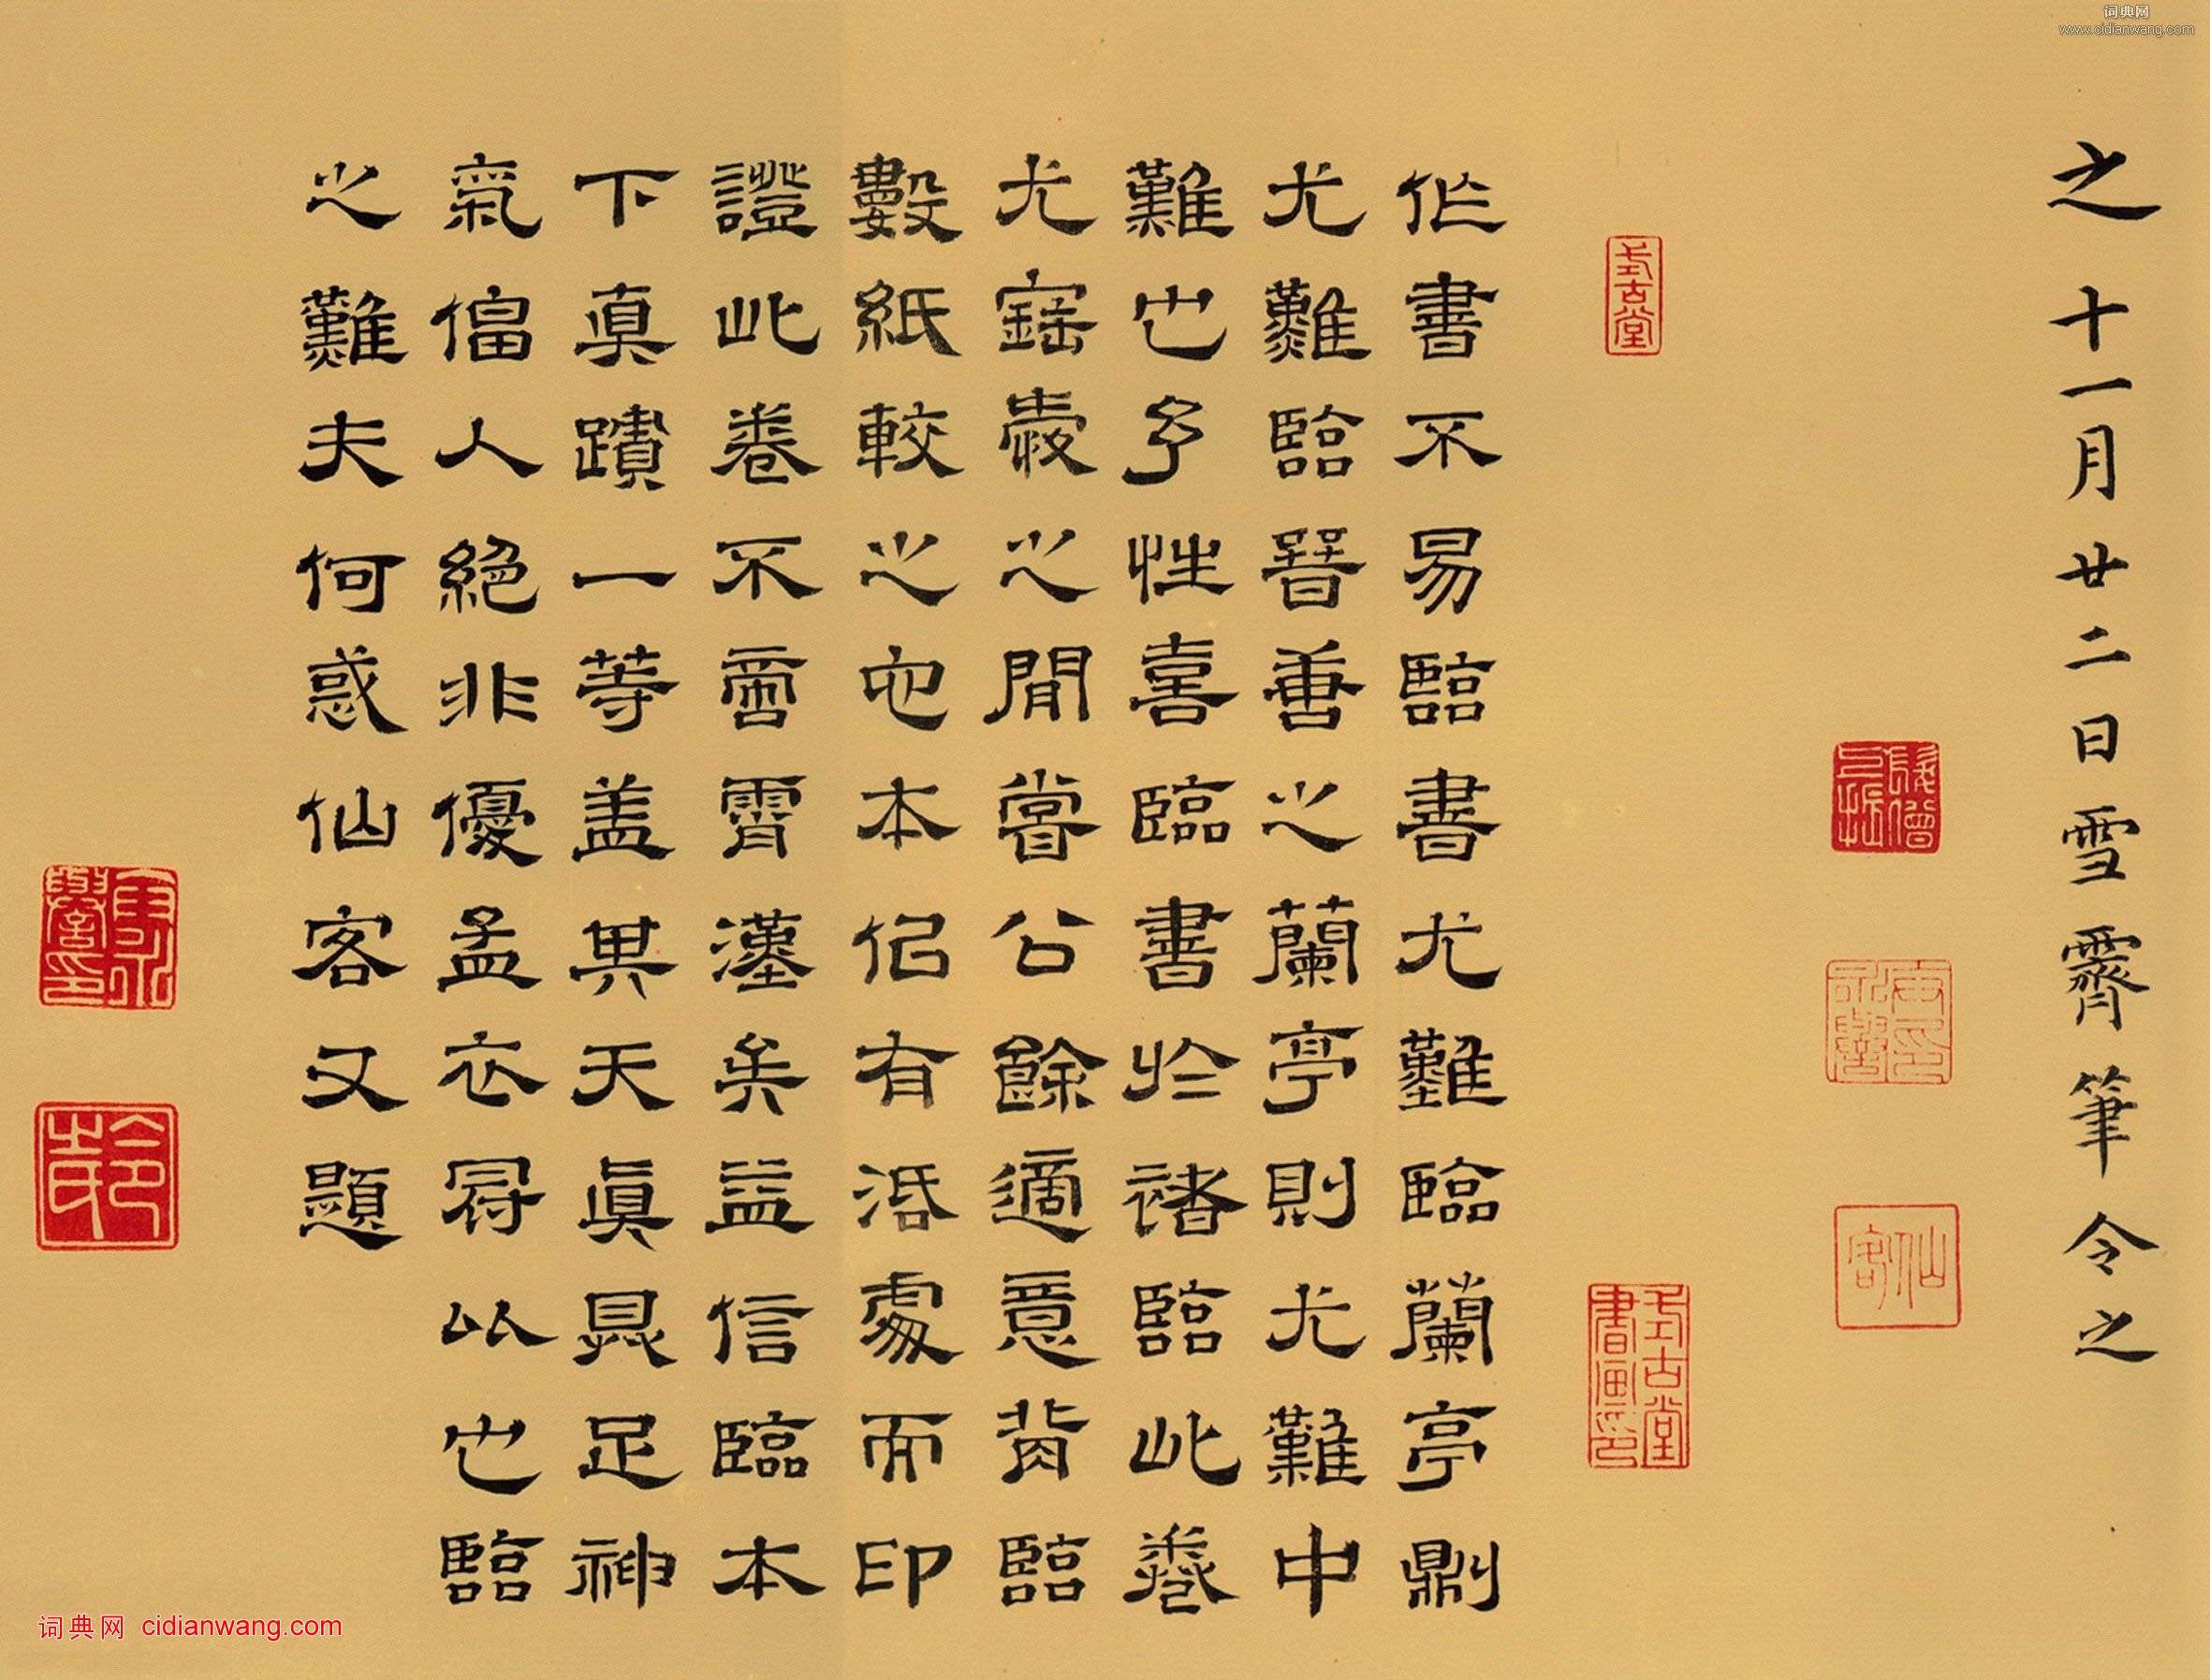 词典网
www.cidianwang.com
之十一月廿二日雪霽筆令之
作書不易臨書尤難臨蘭亭則
尤難臨晉善之蘭亭則尤難中
難也予性喜臨書於諸臨此卷
尤寶愛之閒嘗公餘適意背臨
數紙較之他本似有活處而印
證此卷不啻霄漢矣益信臨本
下真蹟一等蓋其天真具足神
氣偪人絕非優孟衣冠得以也臨
之難夫何惑仙客又題
式古堂
式古堂書畫印
仙客
词典网 cidianwang.com